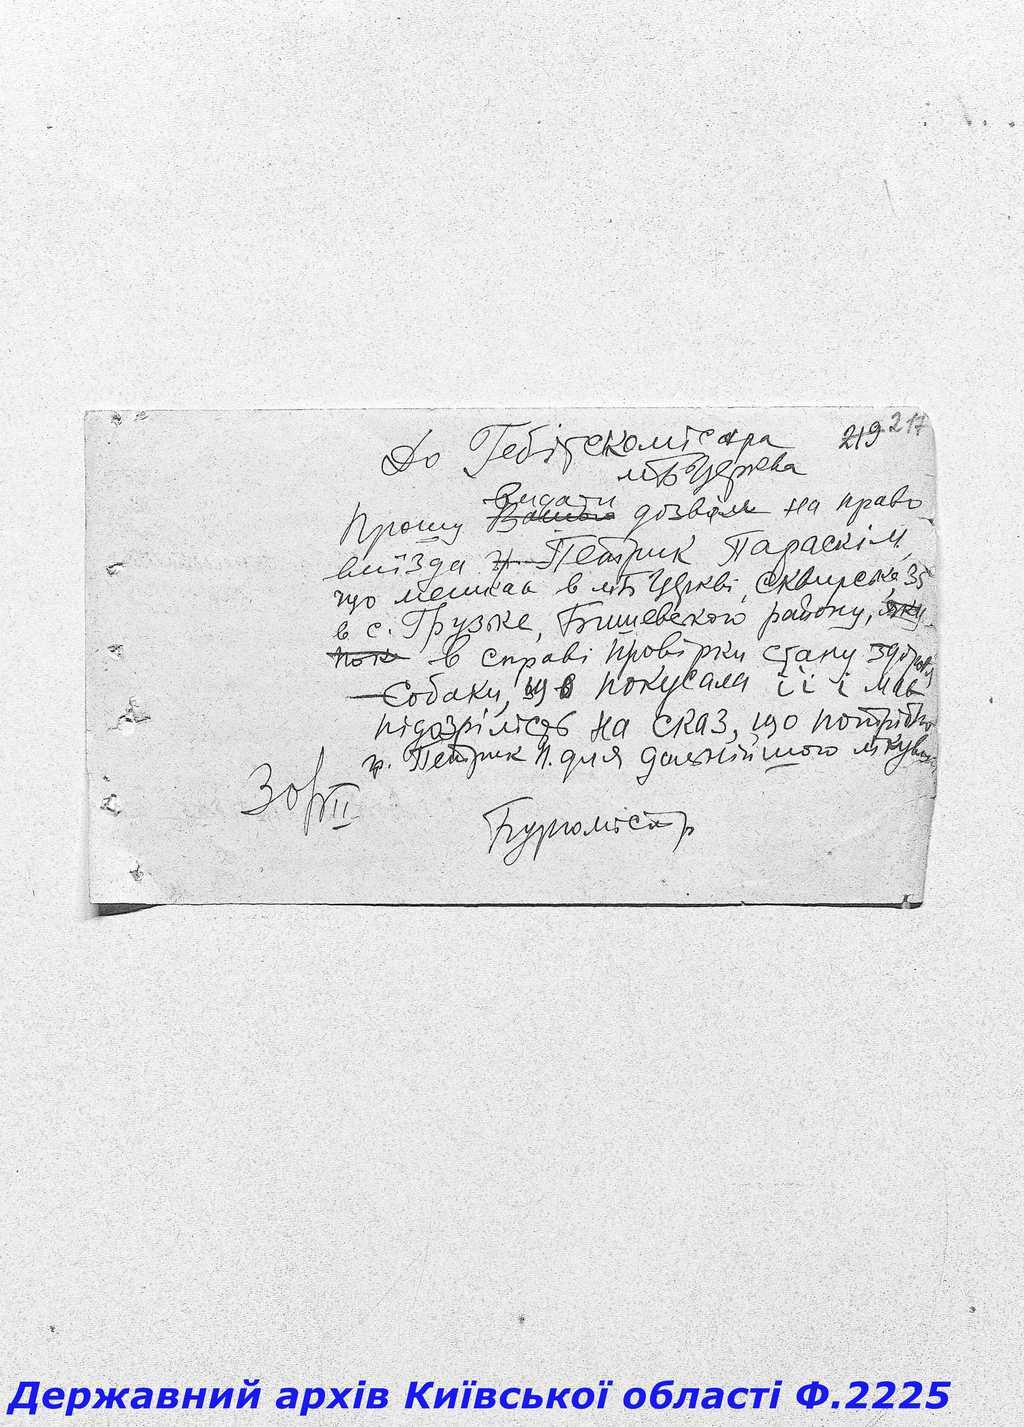 219 217
До Гебітскомісара
м. Б Церква
видати
Прошу дозвіл на право
виїзда гр. Петрик Параскіи,
що мешкає в м. Б Церкві, Сквирська, 35
в с. Грузьке, Бишевского району, яку
в справі провірки стану здоровя
собаки, що покусала її і має
підозрілість на сказ, що потрібно
гр. Петрик П. для дальнійшого лікування
Бургомістр
Державний архів Київської області Ф.2225